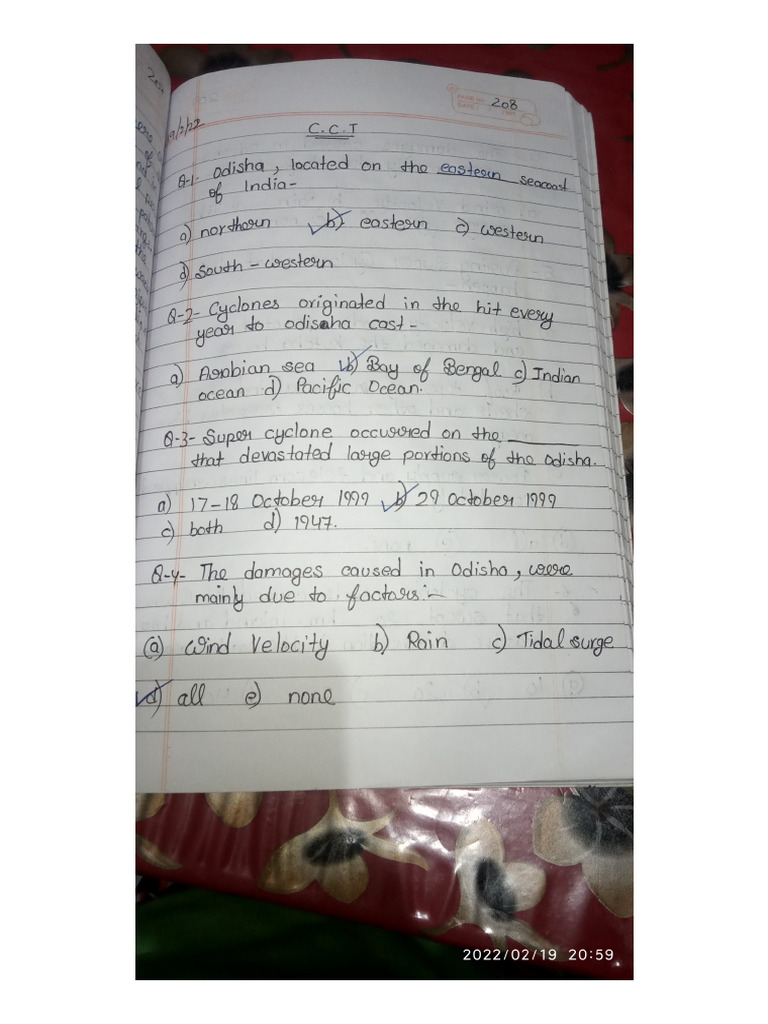 208
C.C.T
Q-1- Odisha, located on the eastern seacoast
of India-
a) northern b) eastern c) western
d) South-western
Q-2- Cyclones originated in the hit every
year to odisaha cost-
a) Arabian sea b) Bay of Bengal c) Indian
ocean d) Pacific Ocean.
Q-3- Super cyclone occurred on the ______
that devastated large portions of the Odisha.
a) 17-18 October 1999 b) 29 October 1999
c) both d) 1947.
Q-4- The damages caused in Odisha, were
mainly due to factors:-
(a) Wind Velocity b) Rain c) Tidal surge
d) all e) none
2022/02/19 20:59